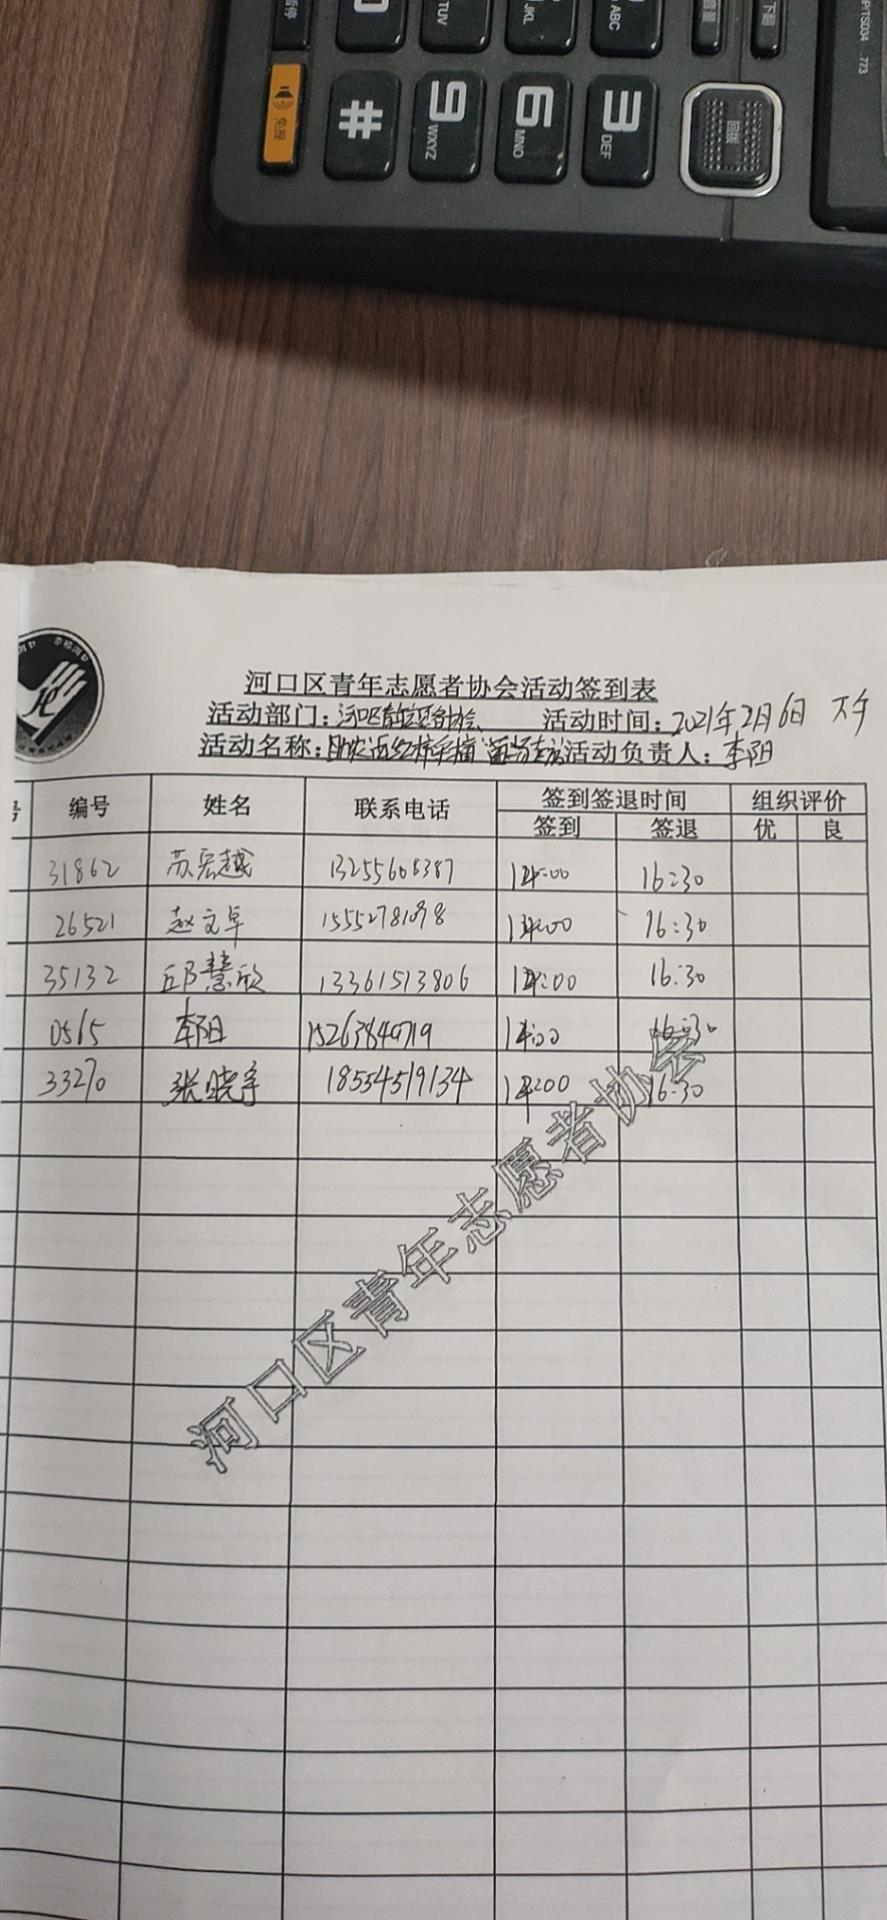 # 9 WXYZ 6 MNO 3 DEF
TUV JKL ABC 音量
免提
河口区青年志愿者协会活动签到表
活动部门：河口区青年志愿者协会 活动时间：2021年2月6日 下午
活动名称：助农西红柿采摘 活动负责人：李阳
编号 姓名 联系电话 签到签退时间 组织评价
签到 签退 优 良
31862 苏宏越 13255606387 14:00 16:30
26521 赵文卓 16:30
35132 邱慧欣 13361513806 14:00 16:30
0565 李阳 15263840719 14:00 16:30
33270 张晓宇 18554519134 14:00 16:30
河口区青年志愿者协会